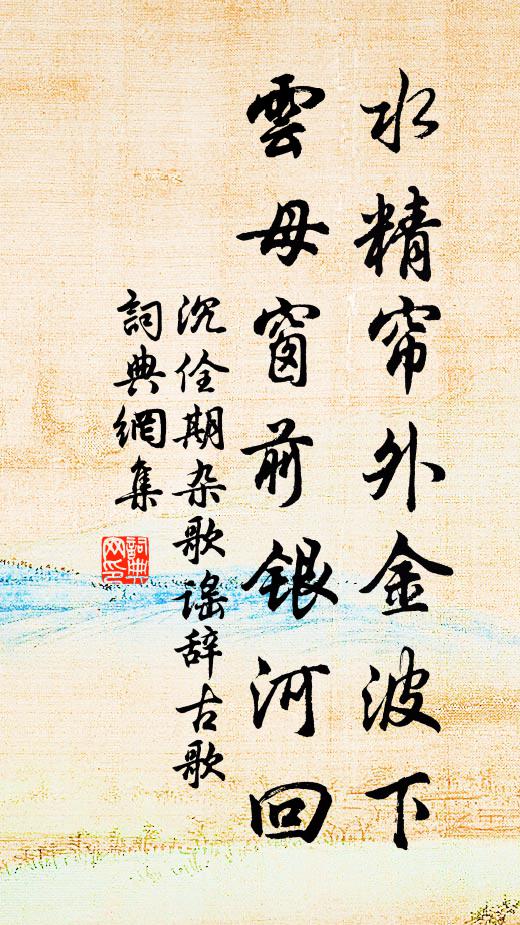 水精帘外金波下
雲母窗前銀河回
沉佺期杂歌谣辞古歌
詞典網集
詞典网印